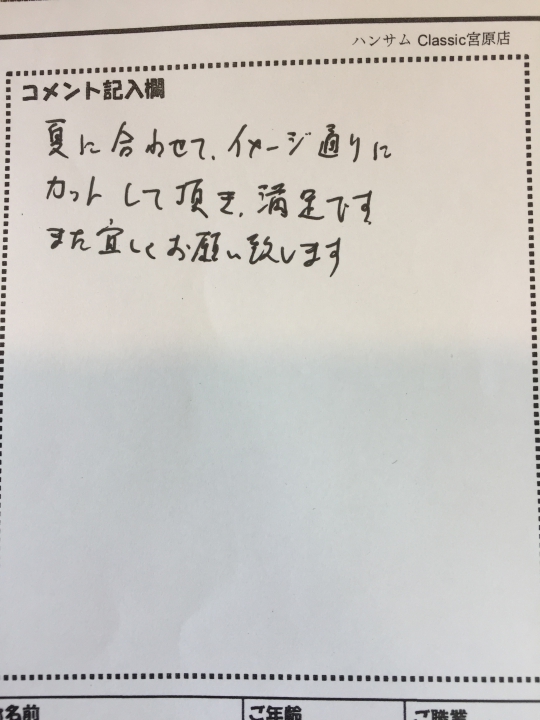 ハンサム Classic宮原店
コメント記入欄
夏に合わせて、イメージ通りに
カットして頂き、満足です。
また宜しくお願い致します
お名前
ご年齢
ご職業